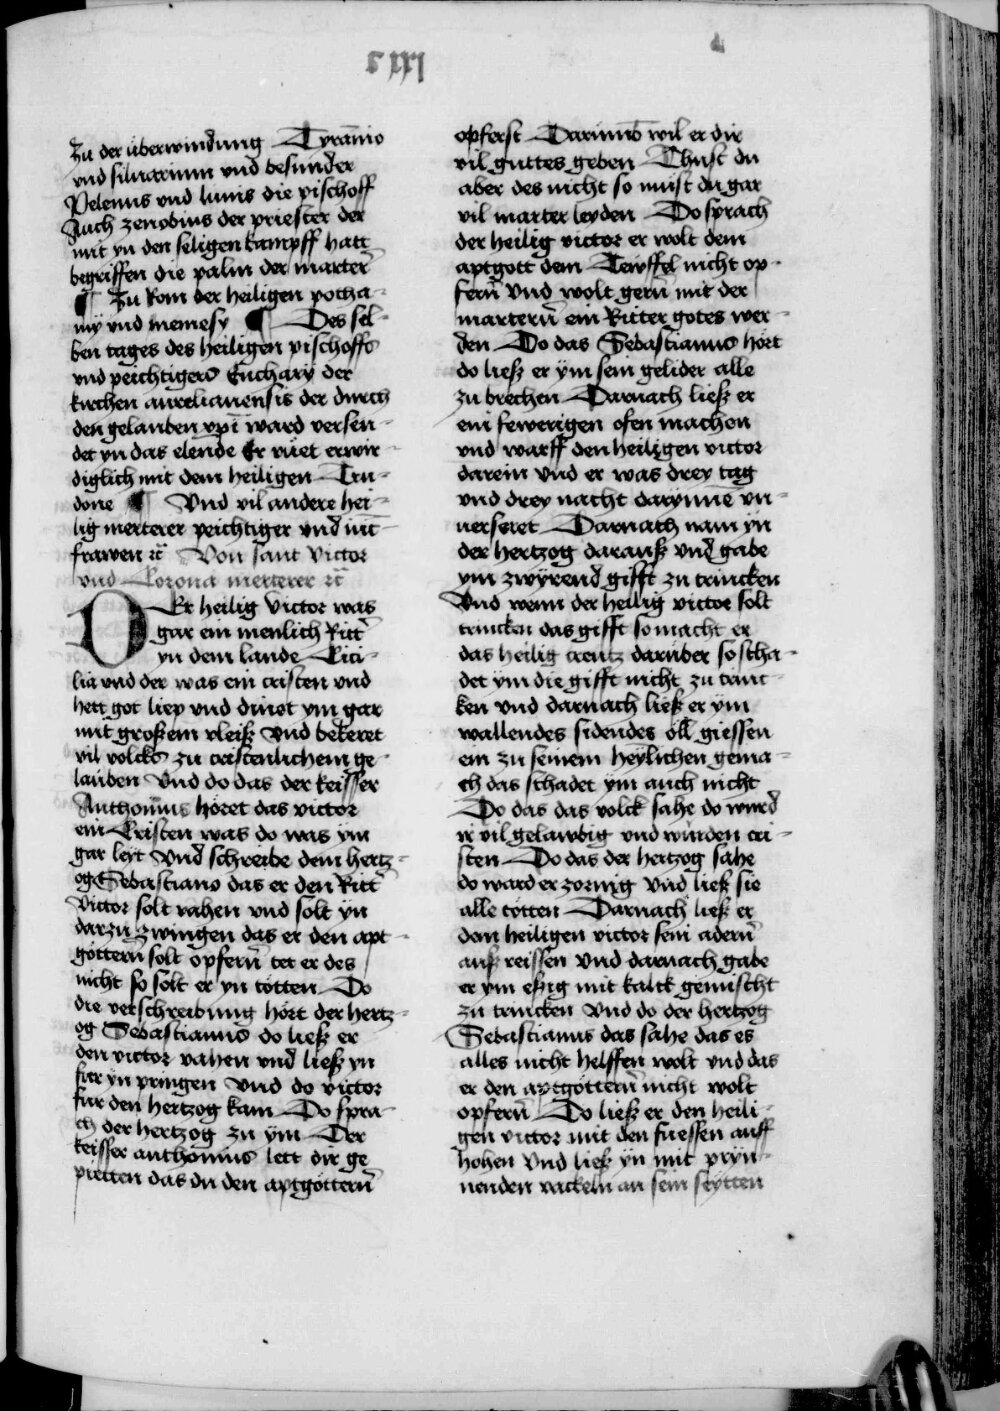 cxxi
Zu der uberwindung Tyrannio
vnd siluanum vnd besunder
Pelenus vnd lunis die pischoff
Auch zenobius der priester der
mit yn den seligen kampff hatt
begriffen die palm der marter̄
¶ Zu Rom der heiligen potha-
my vnd nemesy ¶ Des sel-
ben tages des heiligen pischoffs
vnd peichtigers Euchary der
kirchen aurelianensis der durch
den gelauben xp̄i ward versen-
det yn das elende Er ruet erwir-
diglich mit dem heiligen Tru-
done ¶ Vnd vil andere hei-
lig merterer peichtiger vnd iūc-
frawen ꝛc̄ Von sant victor
vnd Corona merterer ꝛc̄
DEr heilig Victor was
gar ein menlich Ritt̄
yn dem lande Cici-
lia vnd der was ein cristen vnd
hett got liep vnd dinet ym gar
mit großem vleiß Vnd bekeret
vil volcks zu cristenlichem ge-
lauben Vnd do das der keisser
Anthonius höret das victor
ein Cristen was do was ym
gar leyt Vnd schreibe dem hertz-
og Sebastiano das er den Ritt̄
Victor solt vahen vnd solt yn
darzu zwingen das er den apt-
göttern̄ solt opfern̄ tet er des
nicht so solt er yn tötten Do
die verschreibung hört der hertz-
og Sebastianus do ließ er
den victor vahen vnd ließ yn
fur yn pringen Vnd do victor
fur den hertzog kam Do spra-
ch der hertzog zu ym Der
keisser anthonius lett dir ge
pietten das du den aptgöttern̄
opferst Darumb wil er dir
vil guttes geben Thust du
aber des nicht so must du gar
vil marter leyden Do sprach
der heilig victor er wolt dem
aptgott dem Tewffel nicht op-
fern̄ Vnd wolt gern̄ mit der
martern̄ ein Ritter gotes wer-
den Do das Sebastianus hört
do ließ er ym sein gelider alle
zu brechen Darnach ließ er
ein fewerigen ofen machen
vnd warff den heiligen victor
darein vnd er was drey tag
vnd drey nacht darynne vn-
uerseret Darnach nam yn
der hertzog darauß vnd gabe
ym zwyrend gifft zu trincken
Vnd wenn der heilig victor solt
trincken das gifft so macht er
das heilig creutz daruber so scha-
det ym die gifft nicht zu trinc-
ken vnd darnach ließ er ym
wallendes sidendes öll giessen
ein zu seinem heylichen gema-
ch das schadet ym auch nicht
Do das das volck sahe do wurd̄
ir vil gelawbig vnd wurden cri-
sten Do das der hertzog sahe
do ward er zornig vnd ließ sie
alle tötten Darnach ließ er
dem heiligen victor sein adern̄
auß reissen Vnd darnach gabe
er ym eßig mit kalck gemischt
zu trincken Vnd do der hertzog
Sebastianus das sahe das es
alles nicht helffen wolt vnd das
er den aptgöttern̄ nicht wolt
opfern̄ Do ließ er den heili-
gen victor mit den fuessen auff
hohen Vnd ließ yn mit pryn-
nenden vackeln an sein seytten